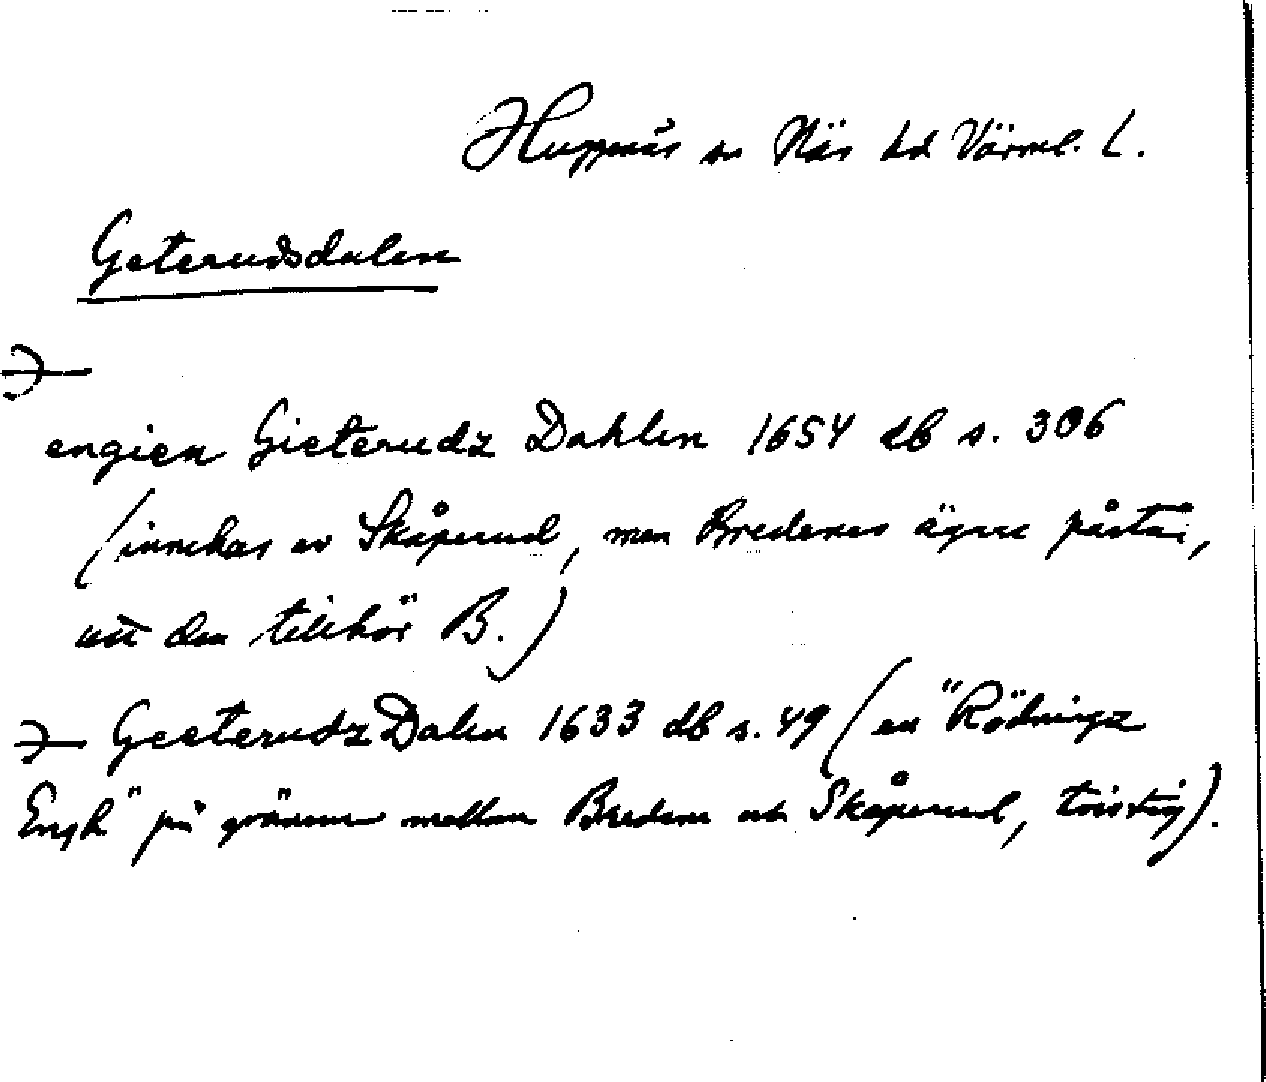 Huggenäs sn Näs hd Värml. L.
Geterudsdalen
engien Gieterudz Dahlen 1654 db s. 306
(innehas av Skåperud, men Bredenes ägare påstår,
att den tillhör B.)
Geeterudz Dalen 1633 db s. 49 (en "Rödningz
Engh" på gränsen mellan Bredene och Skåperud, tvistig).